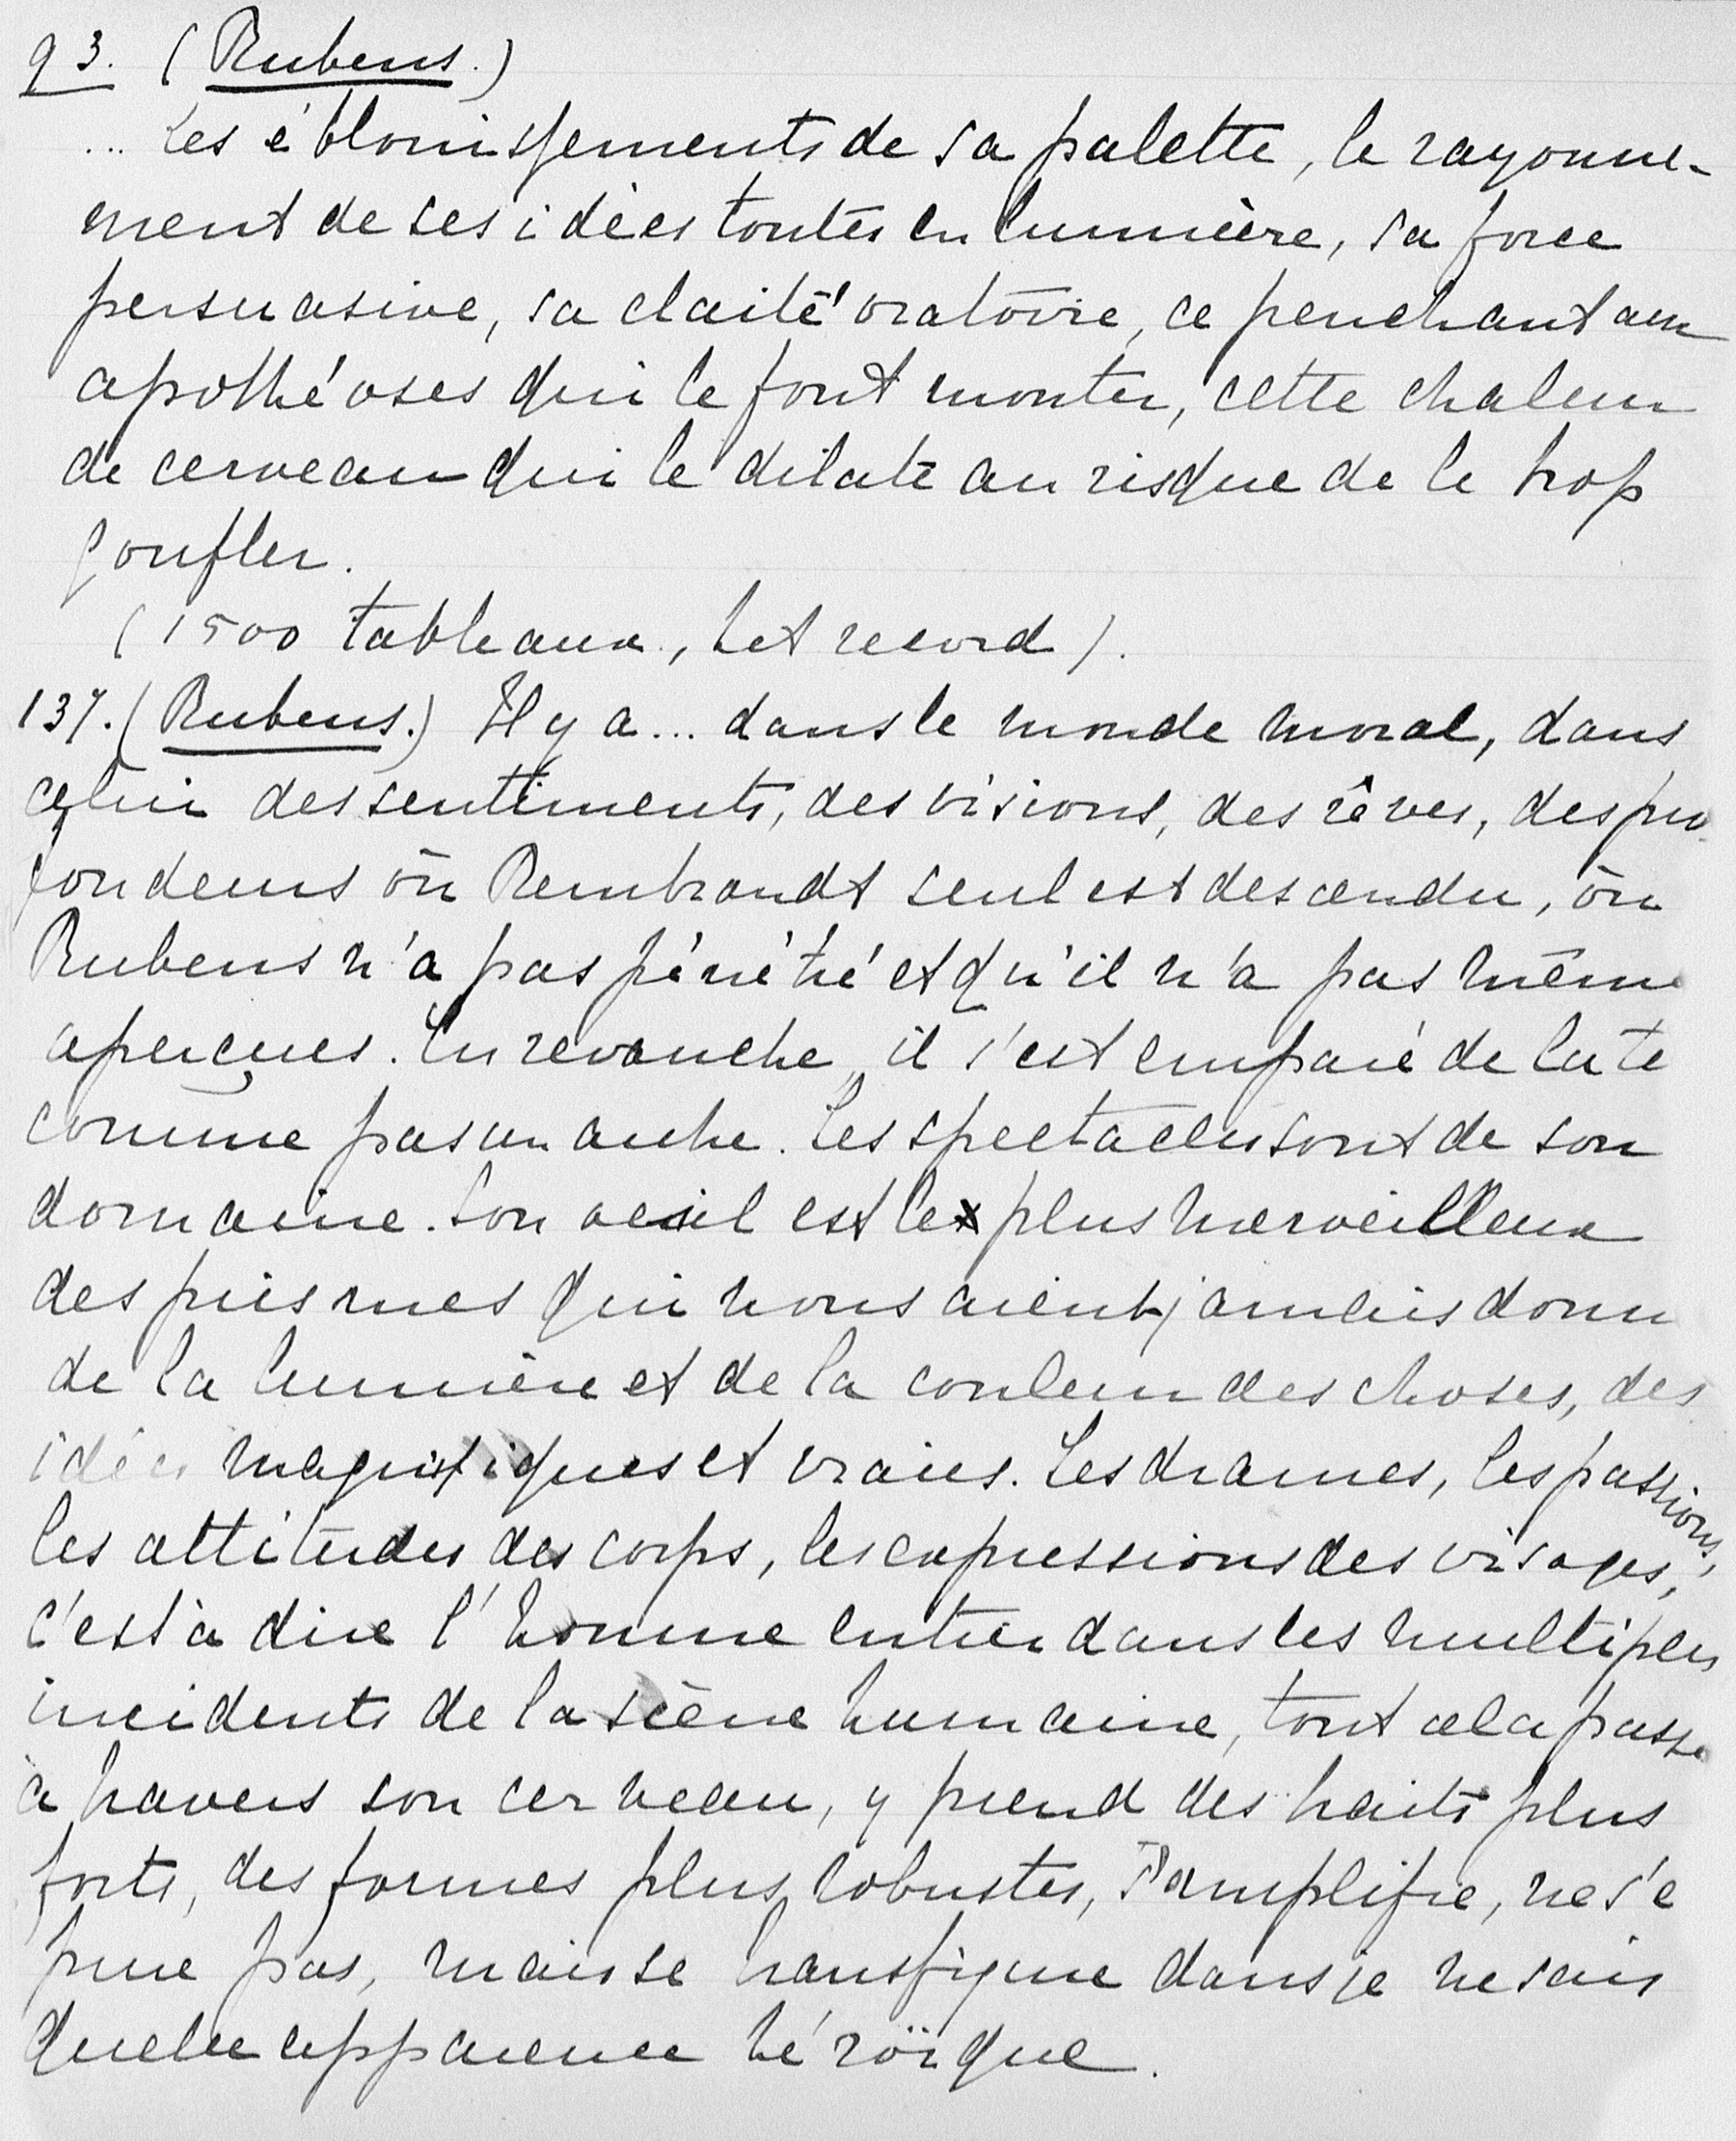 93. (Rubens.)
... Les éblouissements de sa palette, le rayonne-
ment de ses idées toutes en lumière, sa force
persuasive, sa clarté oratoire, ce penchant aux
apothéoses qui le font monter, cette chaleur
de cerveau qui le dilate au risque de le trop
gonfler.
(1500 tableaux, het record).
137. (Rubens.) Il y a ... dans le monde moral, dans
celui des sentiments, des visions, des rêves, des pro
fondeurs où Rembrandt seul est descendu, où
Rubens n'a pas pénétré et qu'il n'a pas même
aperçues. En revanche, il s'est emparé de la te
comme pas un autre. Les spectacles sont de son
domaine. Son oeil est le plus merveilleux
des prismes qui nous aient jamais donn
de la lumière et de la couleur des choses, des
idées magnifiques et vraies. Les drames, les passions,
les attitudes des corps, les expressions des visages,
c'est à dire l'homme entier dans les multiples
incidents de la scène humaine, tout cela passe
à travers son cerveau, y prend des traits plus
forts, des formes plus robustes, s'amplifie, ne s'é
pure pas, mais se transfigure dans je ne sais
quelle apparence héroïque.